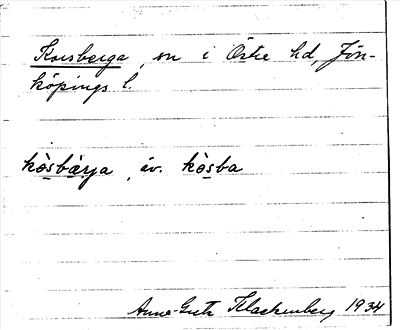 Korsberga, sn i Östre hd, Jön-
köpings l.
kòsbàrja, äv. kòsba
Anna-Greta Klackenberg 1934